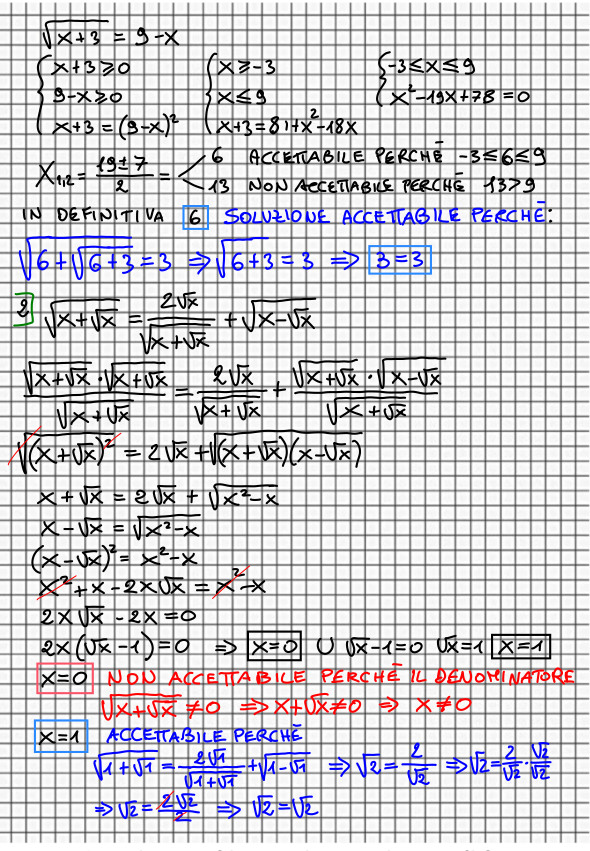 √(x+3) = 9-x
{ x+3⩾0 { x⩾-3 { -3⩽x⩽9
9-x⩾0 x⩽9 x²-19x+78=0
x+3=(9-x)² x+3=81+x²-18x
X₁,₂ = (19±7)/2 = 6 ACCETTABILE PERCHÉ -3⩽6⩽9
13 NON ACCETTABILE PERCHÉ 13>9
IN DEFINITIVA 6 SOLUZIONE ACCETTABILE PERCHÉ:
√(6+√(6+3)) = 3 ⇒ √(6+3) = 3 ⇒ 3=3
2 √(x+√x) = 2√x/√(x+√x) + √(x-√x)
√(x+√x)·√(x+√x)/√(x+√x) = 2√x/√(x+√x) + √(x+√x)·√(x-√x)/√(x+√x)
√(x+√x)² = 2√x+√((x+√x)(x-√x))
x+√x = 2√x + √(x²-x)
x-√x = √(x²-x)
(x-√x)² = x²-x
x²+x-2x√x = x²-x
2x√x - 2x = 0
2x(√x-1)=0 ⇒ x=0 ∪ √x-1=0 √x=1 x=1
x=0 NON ACCETTABILE PERCHÉ IL DENOMINATORE
√(x+√x) ≠0 ⇒ x+√x≠0 ⇒ x≠0
x=1 ACCETTABILE PERCHÉ
√(1+√1) = 2√1/√(1+√1) + √(1-√1) ⇒ √2 = 2/√2 ⇒ √2 = 2/√2 · √2/√2
⇒ √2 = 2√2/2 ⇒ √2=√2